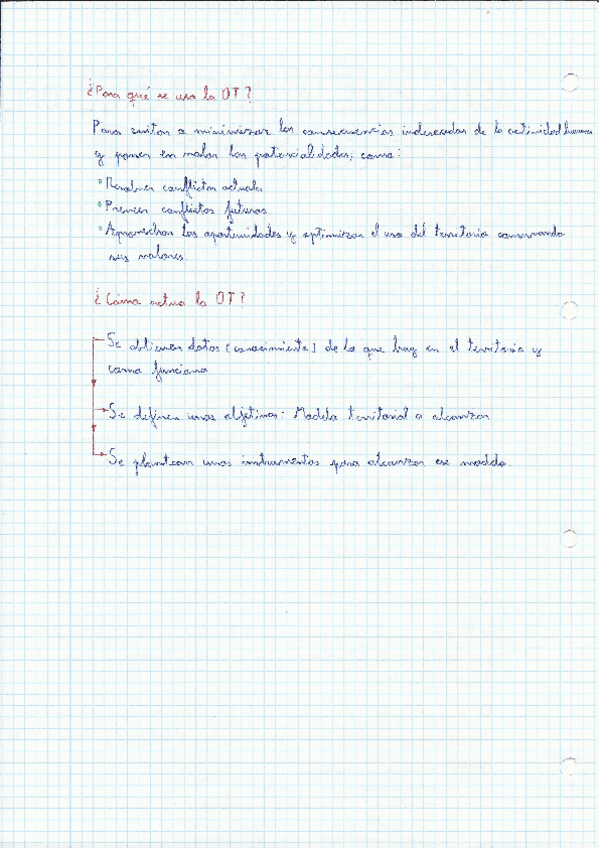 ¿Para qué se usa la OT?
Para evitar o minimizar las consecuencias indeseadas de la actividad humana
y poner en valor las potencialidades, como:
° Resolver conflictos actuales
° Prever conflictos futuros
° Aprovechar las oportunidades y optimizar el uso del territorio conservando
sus valores.
¿Cómo actua la OT?
Se obtienen datos (conocimiento) de lo que hay en el territorio y
como funciona
Se definen unos objetivos: Modelo territorial a alcanzar
Se plantean unos instrumentos para alcanzar ese modelo.